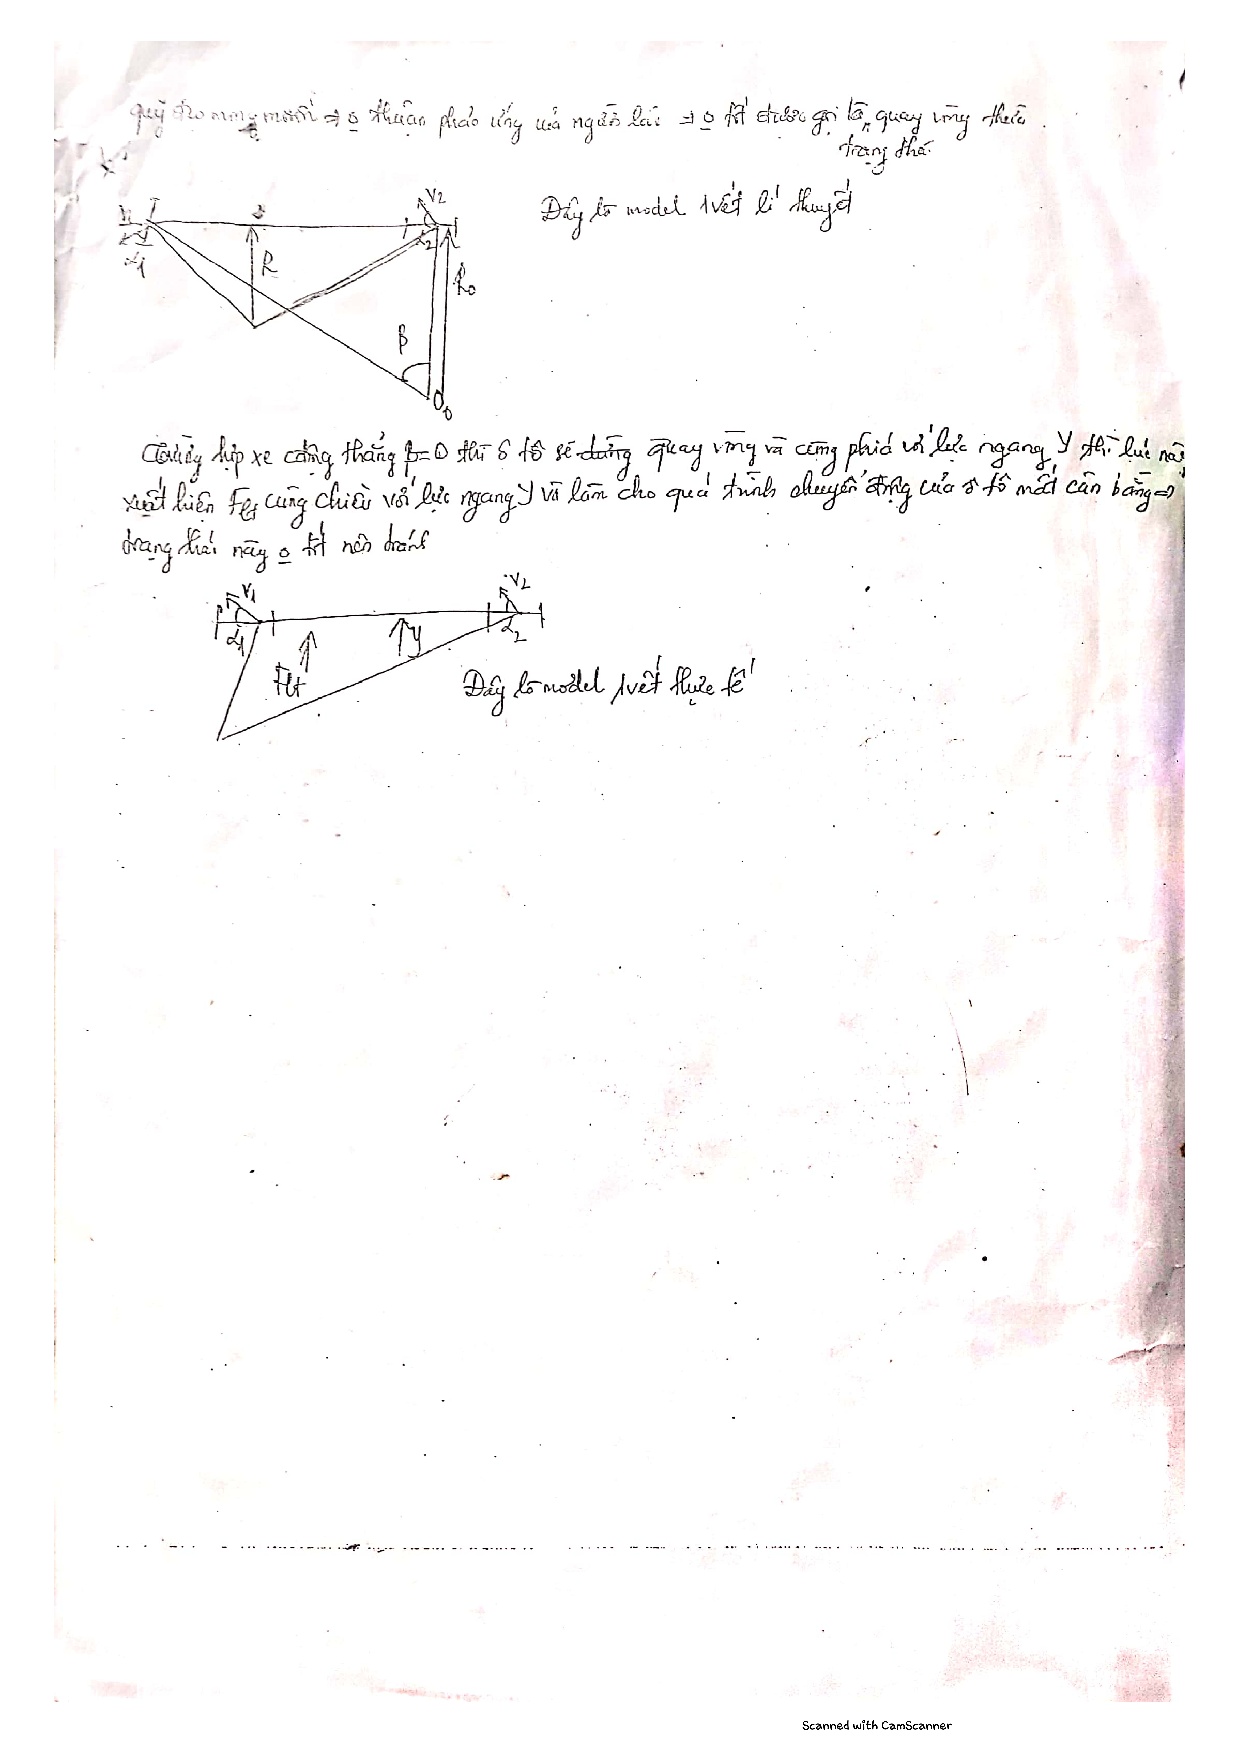 quỹ đạo mong muốn ⇒ o thuận phản ứng của người lái ⇒ o tốt được gọi là quay vòng thiếu
trạng thái
V2
Đây là model 1 vết lí thuyết
α1
α2
R
R0
β
O0
hợp xe căng thẳng β=0 thì ô tô sẽ đang quay vòng và cùng phía với lực ngang Y thì lúc này
xuất hiện Flt cùng chiều với lực ngang Y và làm cho quá trình chuyển động của ô tô mất cân bằng ⇒
trạng thái này o tốt nên tránh
V1
V2
α1
α2
Y
Flt
Đây là model 1 vết thực tế
Scanned with CamScanner